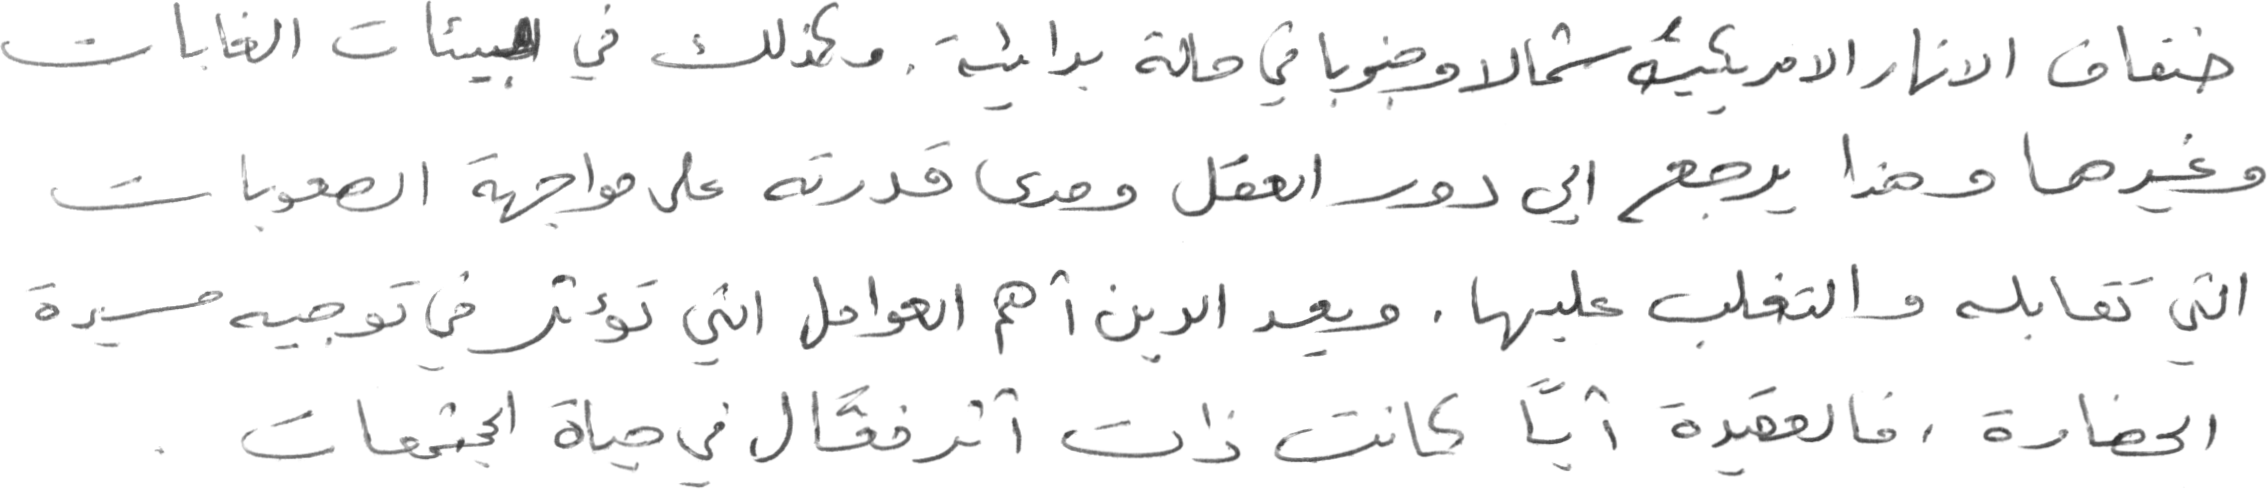 ضفاف الانهار الامريكية شمالا وجنوبا في حالة بدائية. وكذلك في البيئات الغابات
وغيرها وهذا يرجع الي دور العقل ومدى قدرته على مواجهة الصعوبات
التي تقابله والتغلب عليها. ويعد الدين أهم العوامل التي تؤثر في توجيه مسيرة
الحضارة، فالعقيدة أيًّا كانت ذات أثر فعَّال في حياة المجتمعات.